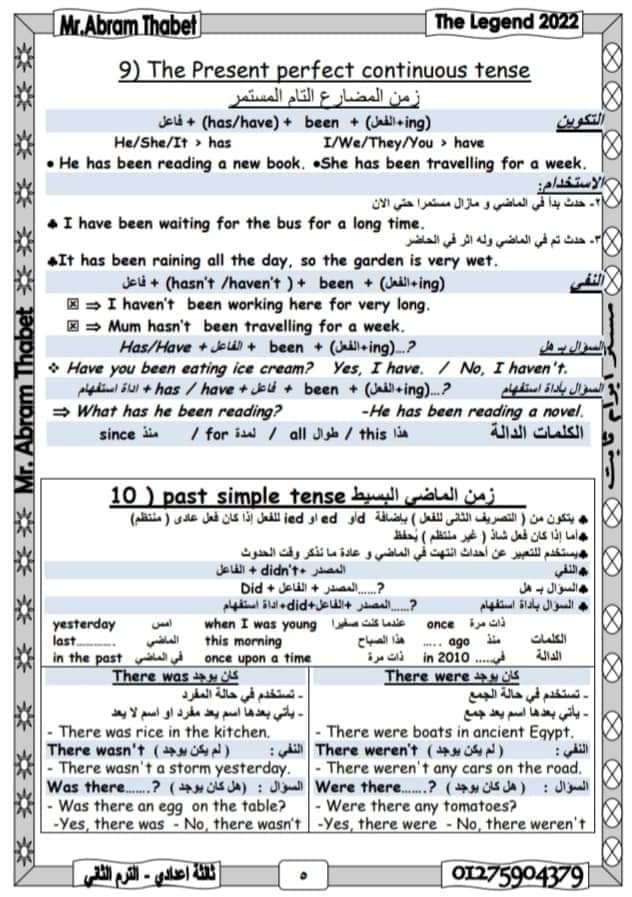 Mr.Abram Thabet
The Legend 2022
9) The Present perfect continuous tense
زمن المضارع التام المستمر
التكوين فاعل + (has/have) + been + (الفعل+ing)
He/She/It > has I/We/They/You > have
• He has been reading a new book. •She has been travelling for a week.
الاستخدام:
٢- حدث بدأ في الماضي و مازال مستمرا حتي الان
♣ I have been waiting for the bus for a long time.
٣- حدث تم في الماضي وله اثر في الحاضر
♣It has been raining all the day, so the garden is very wet.
النفي فاعل + (hasn't /haven't ) + been + (الفعل+ing)
☒ ⇒ I haven't been working here for very long.
☒ ⇒ Mum hasn't been travelling for a week.
السؤال بـ هل Has/Have + الفاعل + been + (الفعل+ing)...?
❖ Have you been eating ice cream? Yes, I have. / No, I haven't.
السؤال بأداة استفهام اداة استفهام + has / have + فاعل + been + (الفعل+ing)...?
⇒ What has he been reading? -He has been reading a novel.
الكلمات الدالة since منذ / for لمدة / all طوال / this هذا
10 ) past simple tense زمن الماضي البسيط
♣ يتكون من ( التصريف الثاني للفعل ) بإضافة d أو ed او ied للفعل إذا كان فعل عادى ( منتظم )
♣أما إذا كان فعل شاذ ( غير منتظم ) يُحفظ
♣يستخدم للتعبير عن أحداث انتهت في الماضي و عادة ما نذكر وقت الحدوث
♣النفي الفاعل + didn't+ المصدر
♣السؤال بـ هل Did + الفاعل + المصدر......?
♣ السؤال بأداة استفهام اداة استفهام+did+الفاعل+ المصدر......?
yesterday امس when I was young عندما كنت صغيرا once ذات مرة
last............ الماضي this morning هذا الصباح ..... ago منذ الكلمات
in the past في الماضي once upon a time ذات مرة in 2010 .....في الدالة
There was كان يوجد
- تستخدم في حالة المفرد
- يأتي بعدها اسم يعد مفرد او اسم لا يعد
- There was rice in the kitchen.
There wasn't ( لم يكن يوجد ) النفي :
- There wasn't a storm yesterday.
Was there.......? ( هل كان يوجد ) السؤال :
- Was there an egg on the table?
-Yes, there was - No, there wasn't
There were كان يوجد
- تستخدم في حالة الجمع
- يأتي بعدها اسم يعد جمع
- There were boats in ancient Egypt.
There weren't ( لم يكن يوجد ) النفي :
- There weren't any cars on the road.
Were there.......? ( هل كان يوجد ) السؤال :
- Were there any tomatoes?
-Yes, there were - No, there weren't
Mr. Abram Thabet
مستر ابرام ثابت
ثالثة اعدادي - الترم الثاني
٥
01275904379